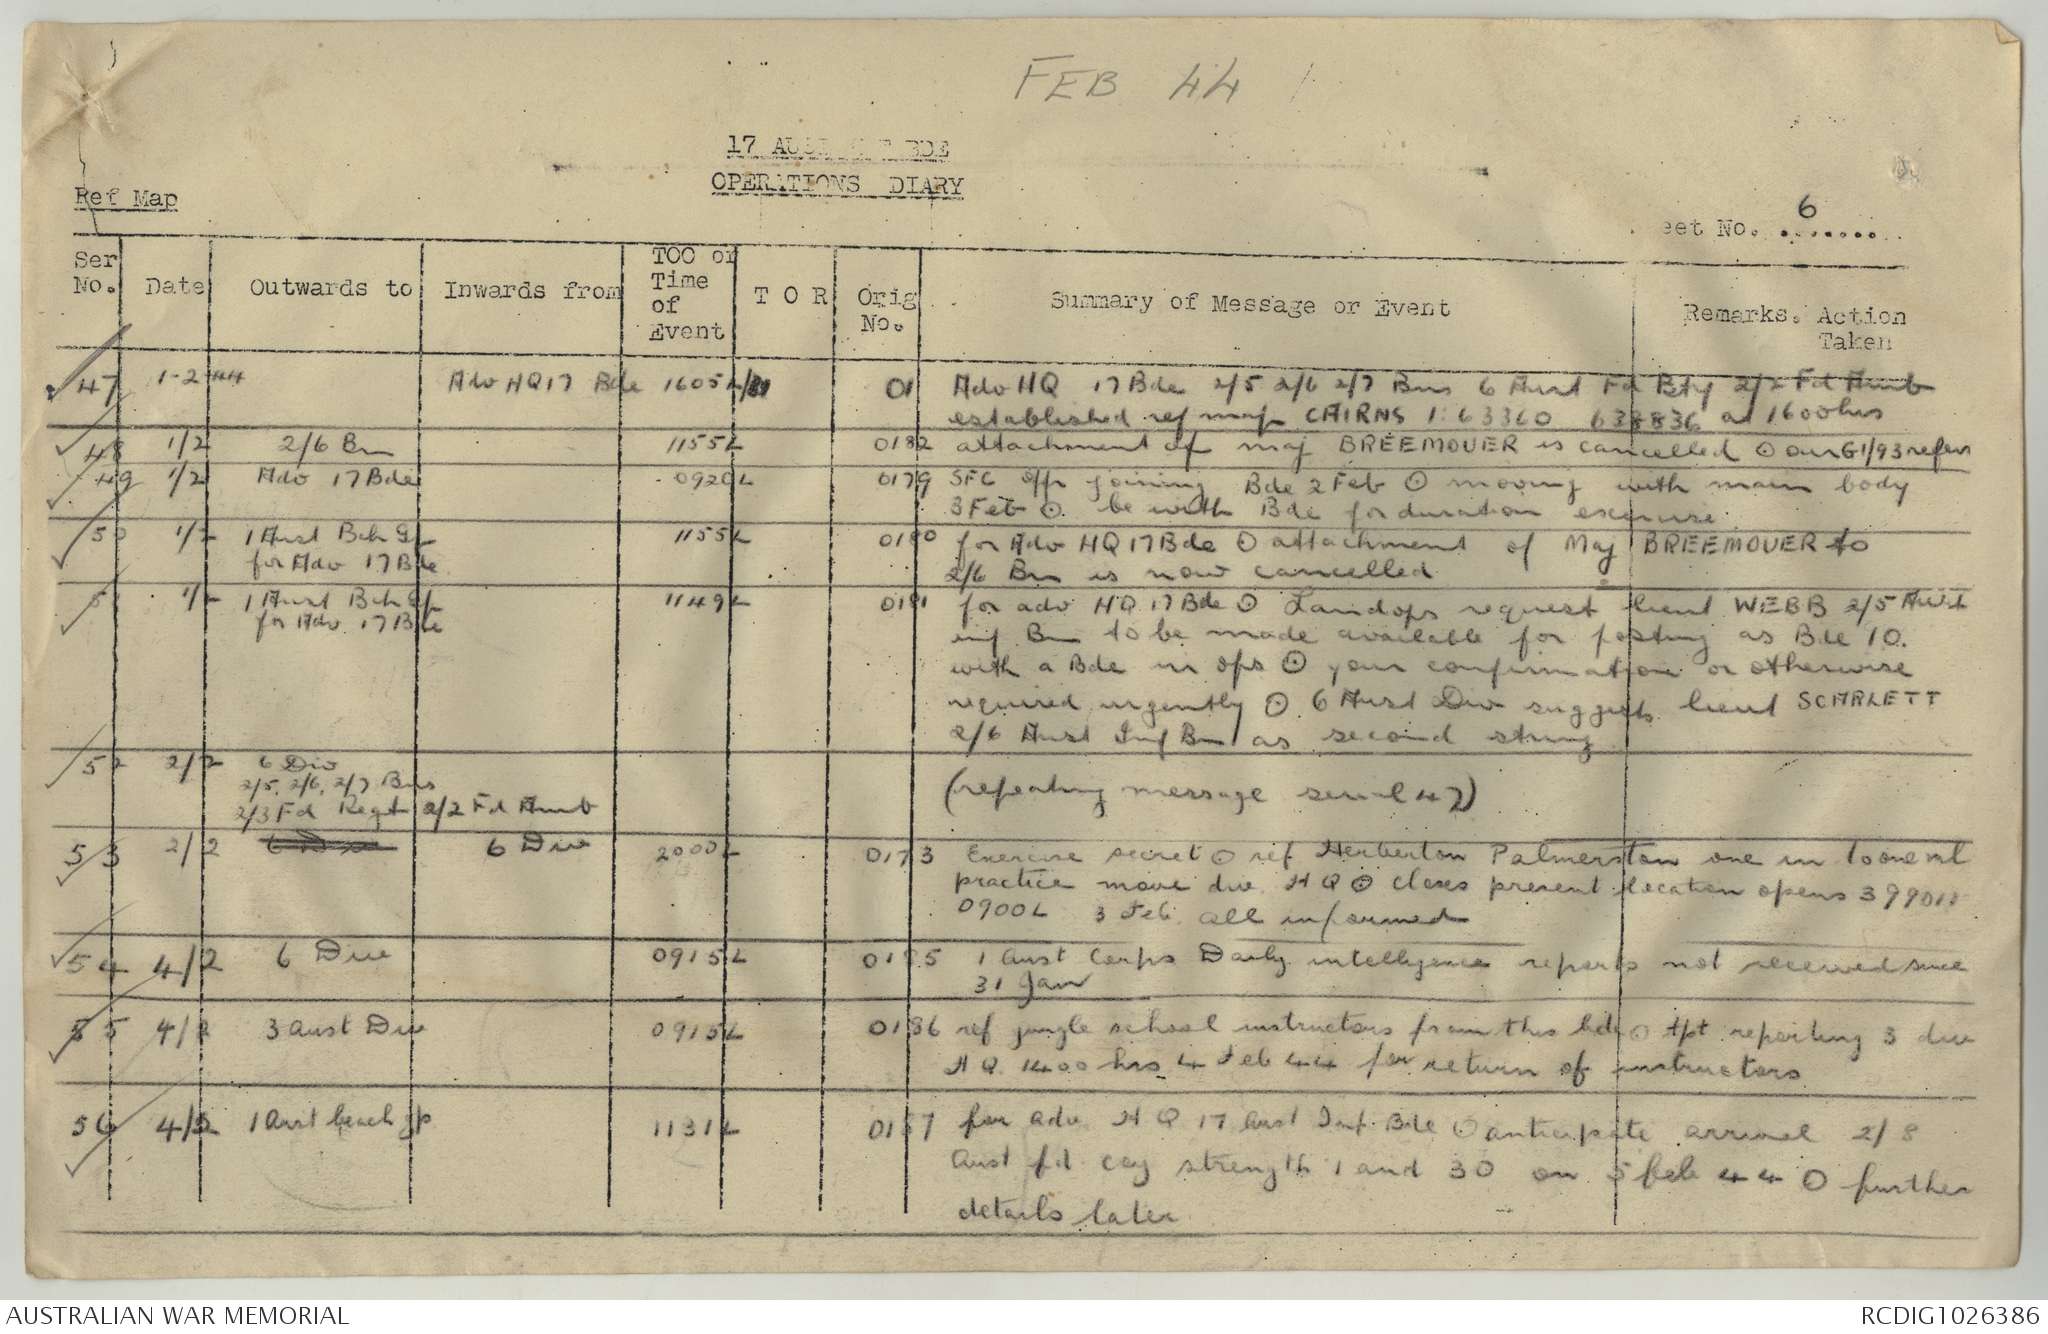 FEB 44
17 AUST INF BDE
OPERATIONS DIARY
Ref Map
eet No. 6
Ser No. Date Outwards to Inwards from TOO or Time of Event T O R Orig No. Summary of Message or Event Remarks. Action Taken
47 1-2-44 Adv HQ 17 Bde 1605L 01 Adv HQ 17 Bde 2/5 2/6 2/7 Bns 6 Aust Fd Bty 2/2 Fd Amb
established ref map CAIRNS 1:63360 638836 at 1600hrs
48 1/2 2/6 Bn 1155L 0182 attachment of maj BREEMOUER is cancelled ⊙ our G1/93 refers
49 1/2 Adv 17 Bde 0920L 0179 SFC offr joining Bde 2 Feb ⊙ moving with main body
3 Feb ⊙ be with Bde for duration exercise
50 1/2 1 Aust Bch Gp 1155L 0180 for Adv HQ 17 Bde ⊙ attachment of Maj BREEMOUER to
for Adv 17 Bde 2/6 Bn is now cancelled
51 1/2 1 Aust Bch Gp 1149L 0181 for adv HQ 17 Bde ⊙ Landops request lieut WEBB 2/5 Aust
for Adv 17 Bde inf Bn to be made available for posting as Bde IO.
with a Bde in ops ⊙ your confirmation or otherwise
required urgently ⊙ 6 Aust Div suggests lieut SCARLETT
2/6 Aust Inf Bn as second string
52 2/2 6 Div
2/5, 2/6, 2/7 Bns (repeating message serial 47)
2/3 Fd Regt 2/2 Fd Amb
53 2/2 6 Div 6 Div 2000L 0173 Exercise secret ⊙ ref Herberton Palmerston one in to one ml
practice move div HQ ⊙ closes present location opens
0900L 3 Feb all informed
54 4/2 6 Div 0915L 0185 1 Aust Corps Daily intelligence reports not received since
31 Jan
55 4/2 3 Aust Div 0915L 0186 ref jungle school instructors from this bde ⊙ tpt reporting 3 div
HQ 1400 hrs 4 Feb 44 for return of instructors
56 4/2 1 Aust beach gp 1131L 0187 for adv HQ 17 Aust Inf Bde ⊙ anticipate arrival 2/8
Aust fd coy strength 1 and 30 on 5 feb 44 ⊙ further
details later
AUSTRALIAN WAR MEMORIAL
RCDIG1026386